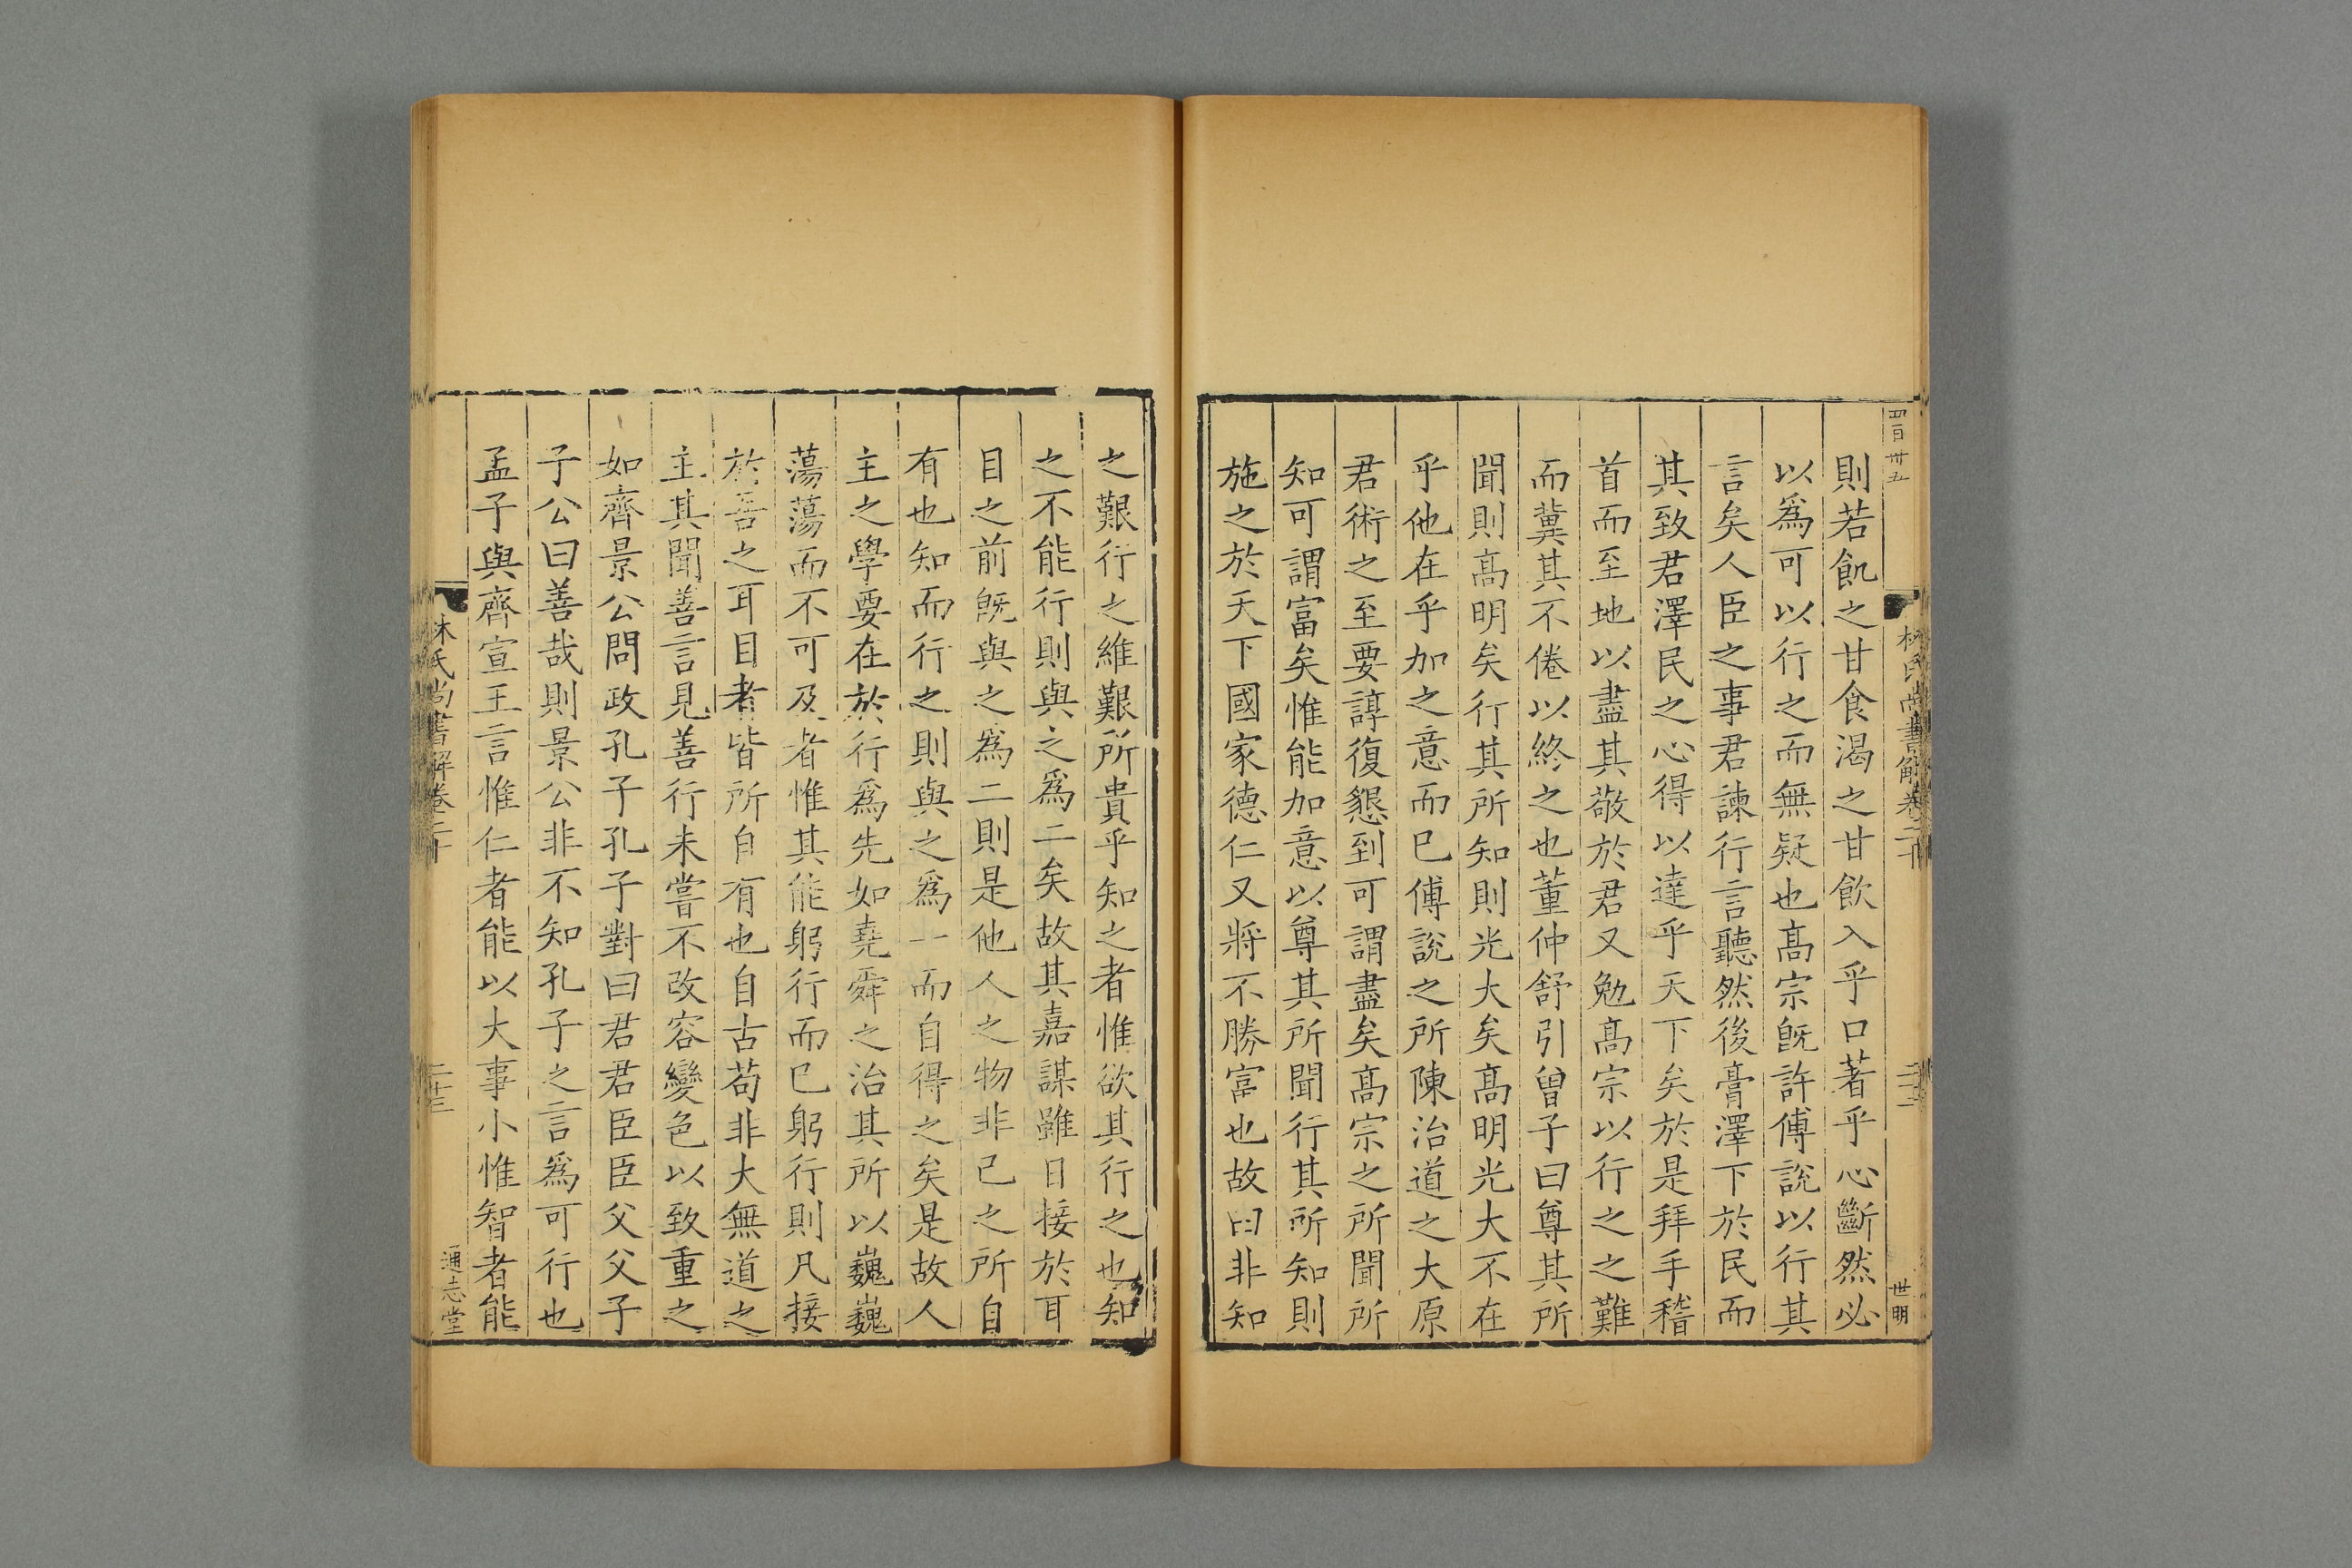 四百卅五
林氏尚書解卷二十
二十二
世明
則若飢之甘食渴之甘飲入乎口著乎心斷然必
以爲可以行之而無疑也髙宗旣許傅說以行其
言矣人臣之事君諫行言聽然後膏澤下於民而
其致君澤民之心得以達乎天下矣於是拜手稽
首而至地以盡其敬於君又勉髙宗以行之之難
而冀其不倦以終之也董仲舒引曾子曰尊其所
聞則髙明矣行其所知則光大矣髙明光大不在
乎他在乎加之意而已傅說之所陳治道之大原
君術之至要諄復懇到可謂盡矣髙宗之所聞所
知可謂富矣惟能加意以尊其所聞行其所知則
施之於天下國家德仁又將不勝富也故曰非知
之艱行之維艱所貴乎知之者惟欲其行之也知
之不能行則與之爲二矣故其嘉謀雖日接於耳
目之前旣與之爲二則是他人之物非已之所自
有也知而行之則與之爲一而自得之矣是故人
主之學要在於行爲先如堯舜之治其所以巍巍
蕩蕩而不可及者惟其能躬行而已躬行則凡接
於吾之耳目者皆所自有也自古苟非大無道之
主其聞善言見善行未嘗不改容變色以致重之
如齊景公問政孔子孔子對曰君君臣臣父父子
子公曰善哉則景公非不知孔子之言爲可行也
孟子與齊宣王言惟仁者能以大事小惟智者能
林氏尚書解卷二十
二十三
通志堂